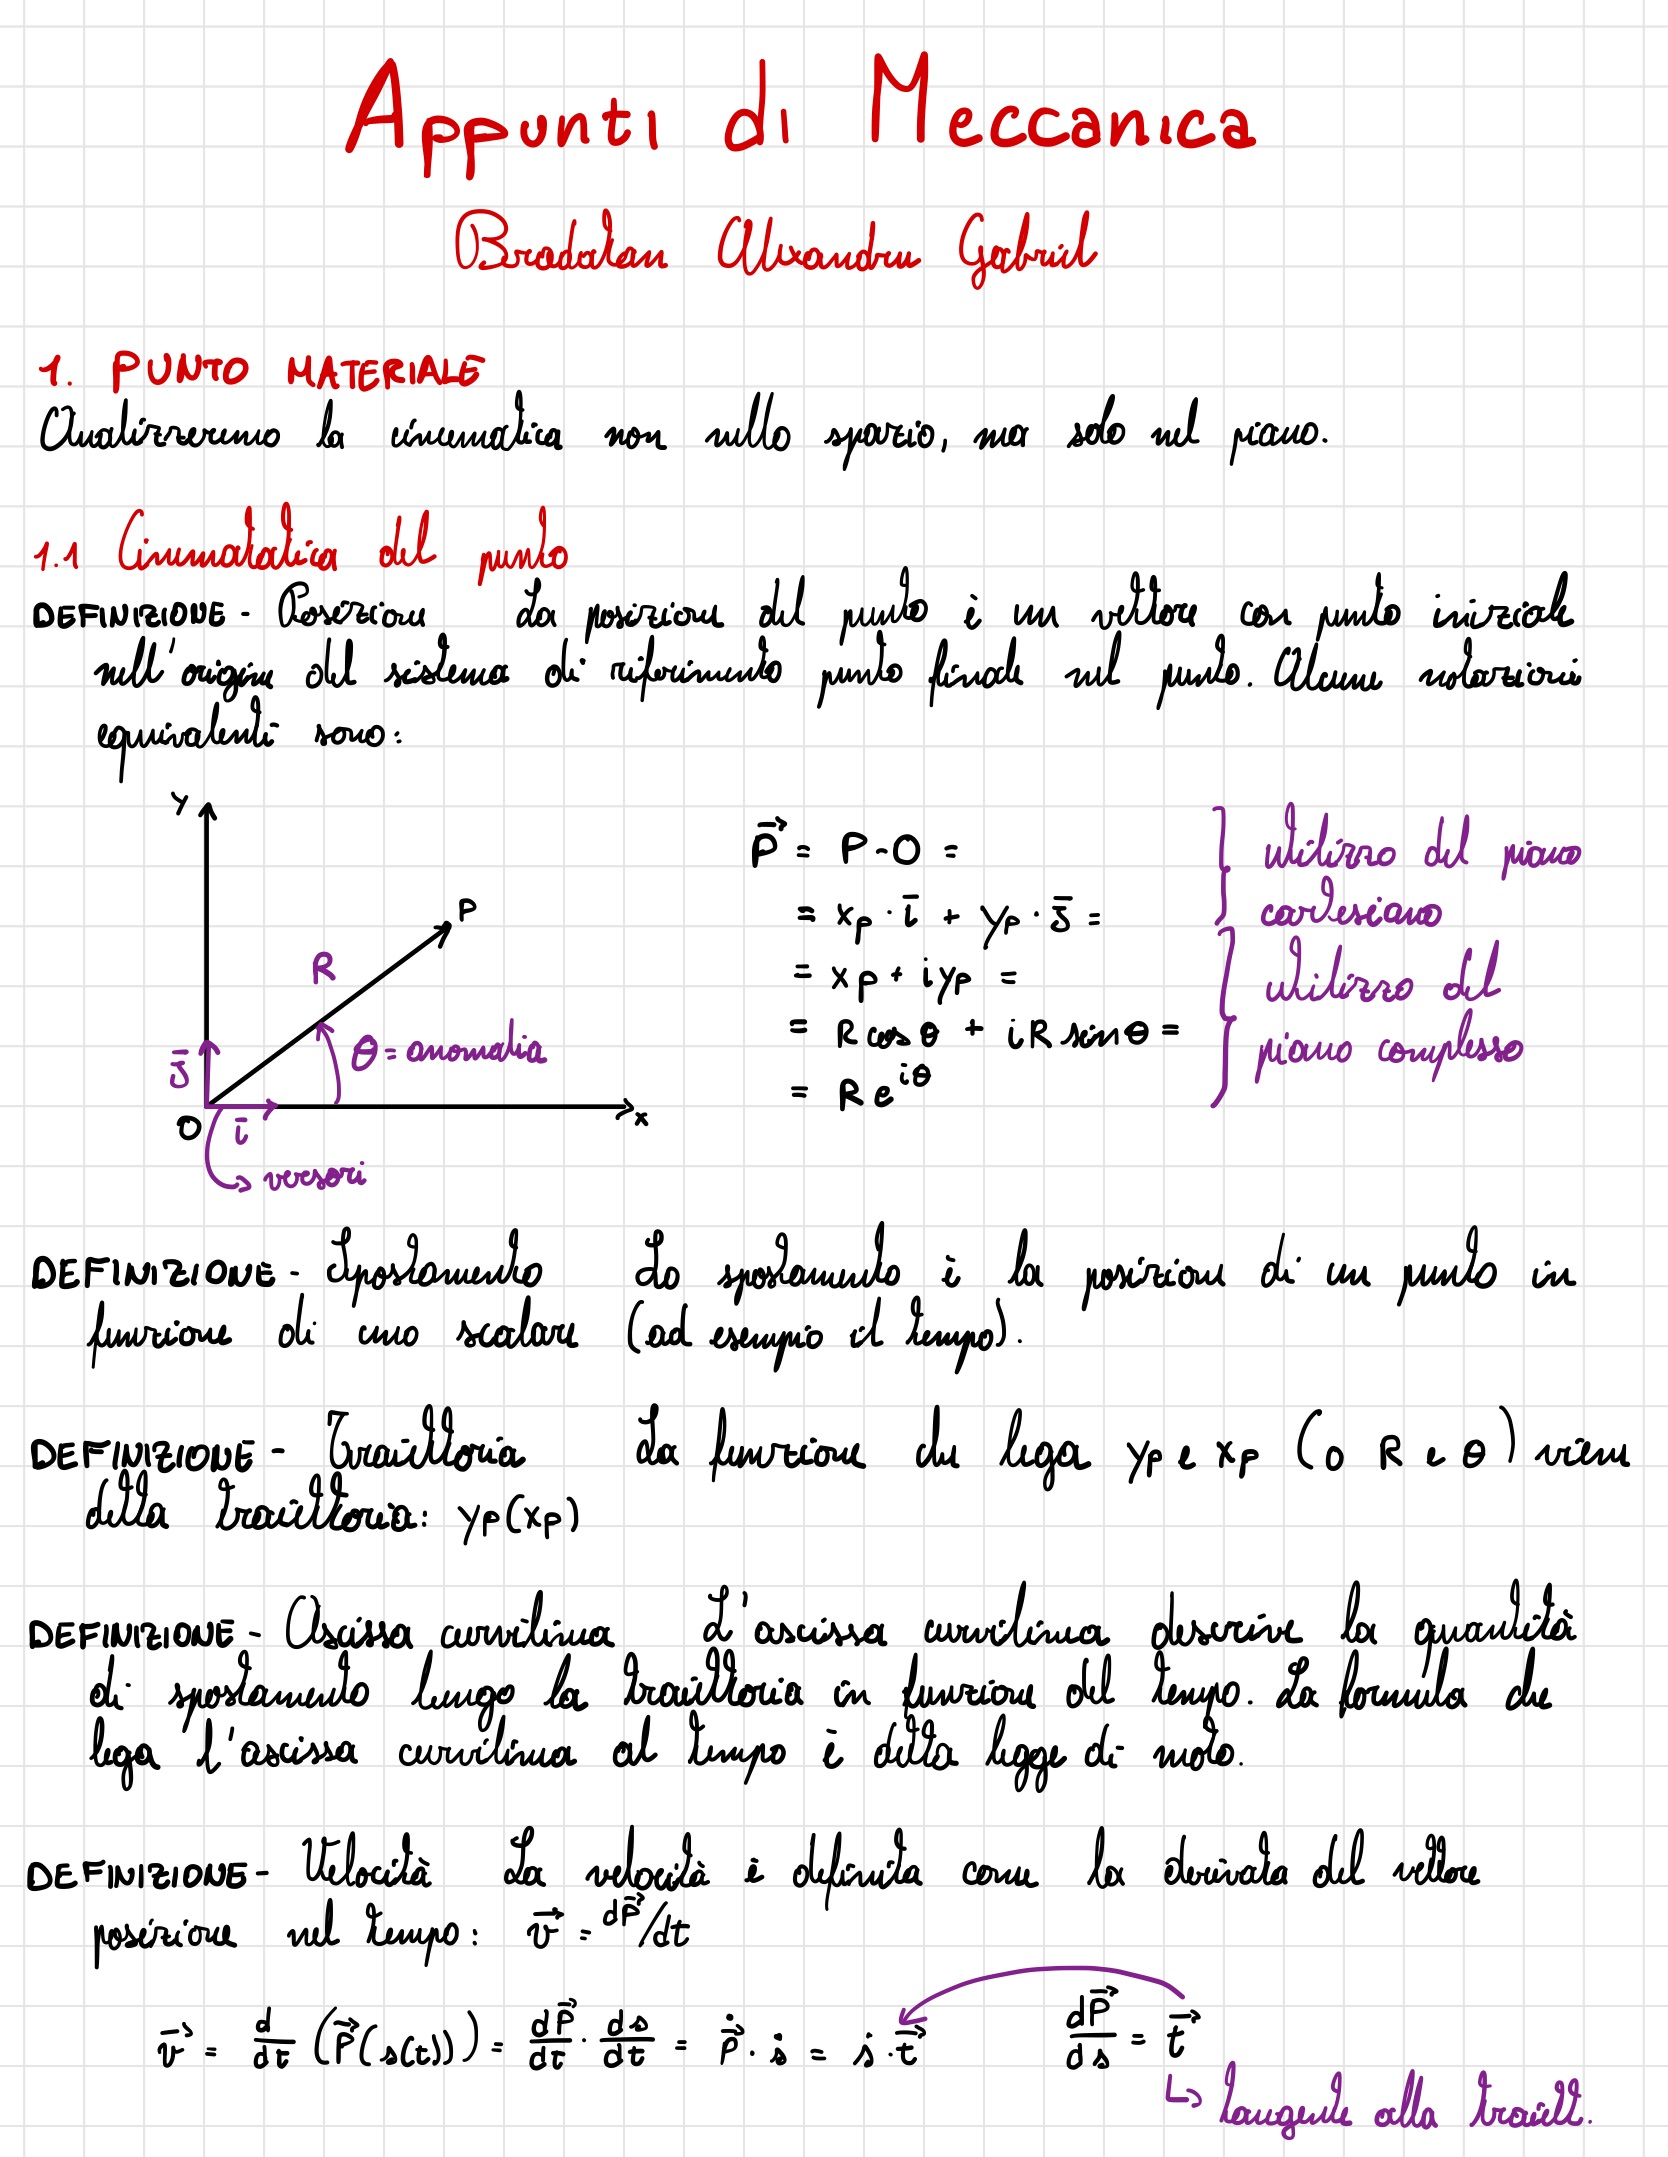 Appunti di Meccanica
Bradatan Alexandru Gabriel
1. PUNTO MATERIALE
Analizzeremo la cinematica non nello spazio, ma solo nel piano.
1.1 Cinematatica del punto
DEFINIZIONE - Posizione La posizione del punto è un vettore con punto iniziale
nell'origine del sistema di riferimento punto finale nel punto. Alcune notazioni
equivalenti sono:
y
P
R
θ = anomalia
j̄
O
ī
x
versori
P⃗ = P - O =
= xp · ī + yp · j̄ =
= xp + iyp =
= R cos θ + i R sin θ =
= R e^iθ
utilizzo del piano
cartesiano
utilizzo del
piano complesso
DEFINIZIONE - Spostamento Lo spostamento è la posizione di un punto in
funzione di uno scalare (ad esempio il tempo).
DEFINIZIONE - Traiettoria La funzione che lega yp e xp (o R e θ) viene
detta traiettoria: yp(xp)
DEFINIZIONE - Ascissa curvilinea L'ascissa curvilinea descrive la quantità
di spostamento lungo la traiettoria in funzione del tempo. La formula che
lega l'ascissa curvilinea al tempo è detta legge di moto.
DEFINIZIONE - Velocità La velocità è definita come la derivata del vettore
posizione nel tempo: v⃗ = dP⃗/dt
v⃗ = d/dt (P⃗(s(t))) = dP⃗/dt · ds/dt = Ṗ⃗ · ṡ = ṡ · t⃗ dP⃗/ds = t⃗
↳ tangente alla traiett.